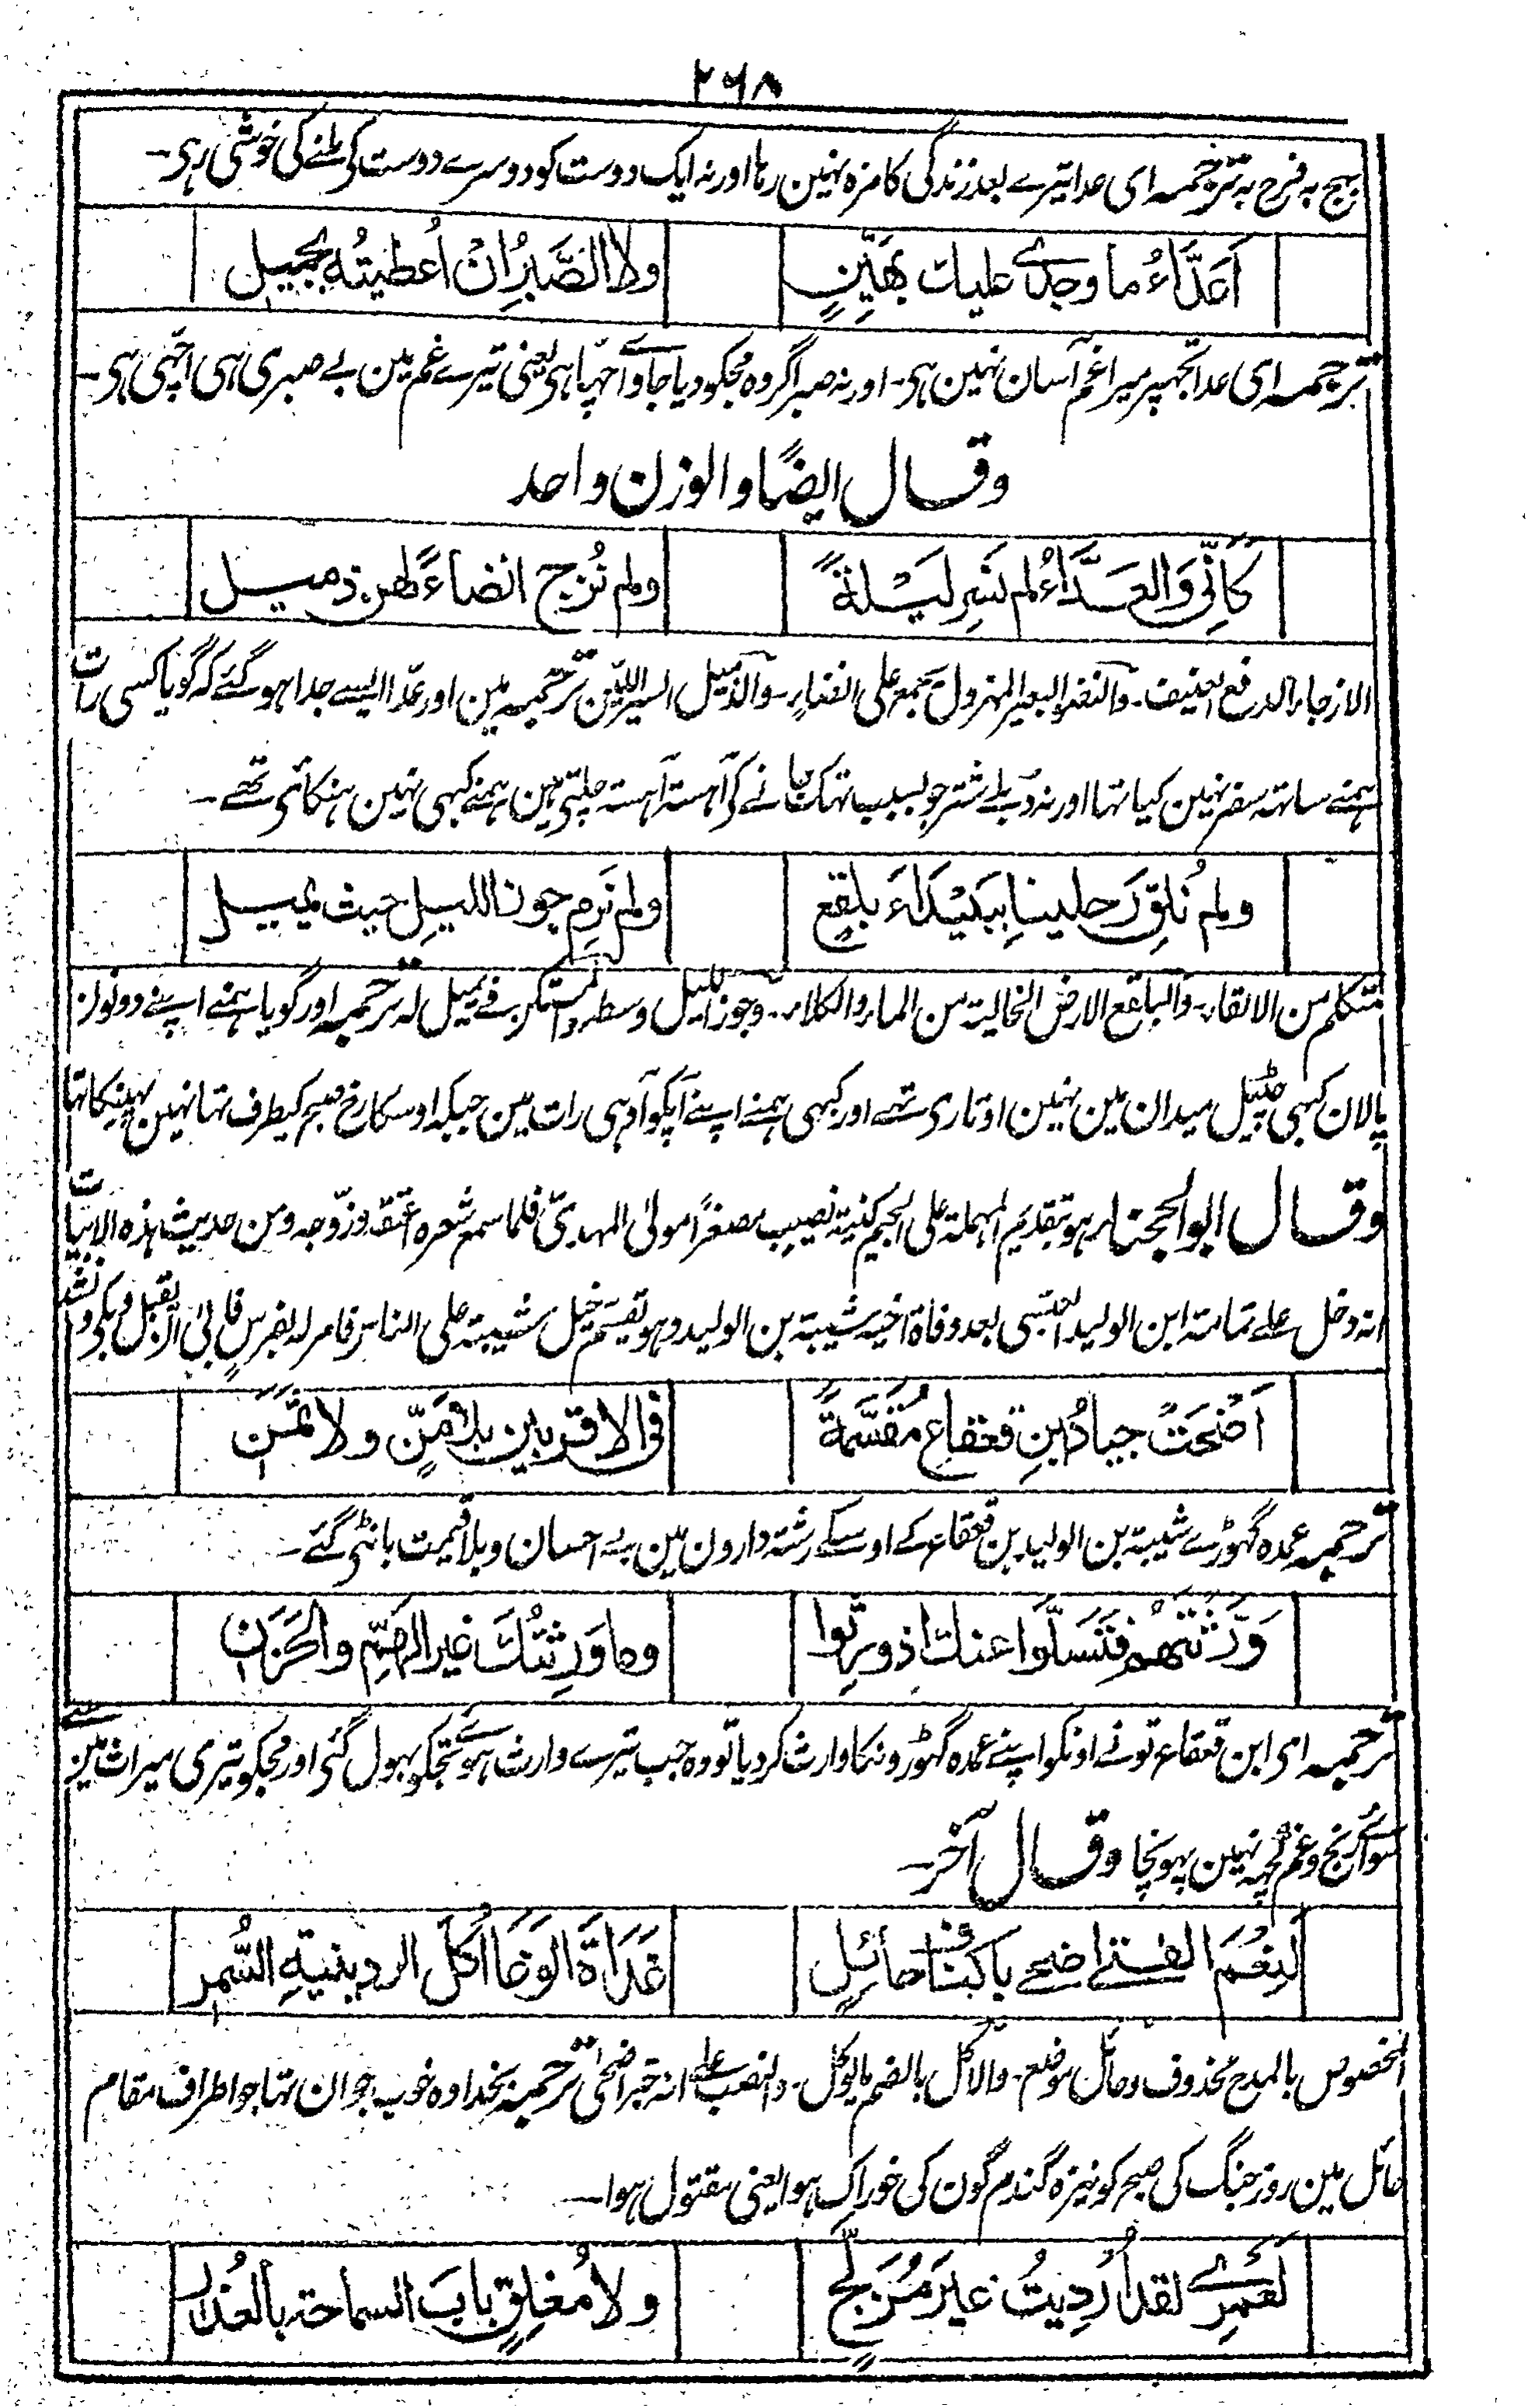 ۲۶۸
بہج بہ فرح بہ ترجمہ ای عدا تیرے بعد زندگی کا مزہ نہین رہا اور نہ ایک دوست کو دوسرے دوست کی ملنے کی خوشی رہی۔
اَعَدَّاءُ ما وجدی علیك بھَیِّنٍ ولا الصَّبرُ اِنْ اُعطیتُه بجمیل
ترجمہ ای عدا تجہپر میرا غم آسان نہین ہی۔ اور نہ صبر اگر وہ مجکو دیا جاوے اچہا ہی یعنی تیرے غم مین بے صبری ہی اچہی ہی۔
وقال ایضًا والوزن واحد
كَاَنِّی وَالعَدَّاءُ لم نَسِر لَیْلةً ولم نُزج انضاءً لهن ذمیل
الازجاء الدفع العنیف۔ والنضو البعیر المہزول یجمع علی انضاء۔ والذمیل السیر اللین ترجمہ مین اور عدّا ایسے جدا ہو گئے کہ گویا کسی رات
ہمنے ساتہ سفر نہین کیا تہا اور نہ دُبلے شتر جو بسبب تہک جانے کی آہستہ آہستہ چلتی ہین ہمنے کبہی نہین ہنکائی تہے۔
ولم نُلقِ رَحلینا بِبَیْدَاءَ بلقعٍ ولم نَرمِ جوز اللیلِ حیث یمیل
متکلم من الالقاء۔ والبلقع الارض الخالیة من الماء والکلاء۔ وجوز اللیل وسطہ والمستکن فے یمیل لہ ترجمہ اور گویا ہمنے اپنے دونوں
پالان کسی چٹیل میدان مین نہین اوتاری تہے اور کبہی ہمنے اپنے آپکو آدہی رات مین جبکہ اوسکا رخ صبح کیطرف تہا نہین پہینکا تہا
وقال ابو الحجناء ہو بتقدیم المہملة علی الجیم کنیة نصیب مصغرًا مولیٰ المہدیّ فلما سمع شعرہ اعتقہ وزوّجہ ومن حدیث ہذہ الابیات
انہ دخل علے ثمامة ابن الولید العبسی بعد وفاة اخیہ شیبة بن الولید وہو یقسّم خیل شیبة علی الناس فامر لہ بفرسٍ فابیٰ ان یقبل وبکی وانشد
اَضْحَتْ جیادُ ابنِ قعقاع مُقَسَّمَةً فی الاقربین بلا مَنٍّ ولا ثَمَنٖ
ترجمہ عمدہ گہوڑے شیبة بن الولید بن قعقاع کے اوسکے رشتہ دارون مین بے احسان وبلا قیمت بانٹی گئے۔
وَرَّثتَهم فَتَسَلَّوا عنك اذ ورثوا وما وَرِثتُكَ غیر الهَمِّ والحَزَن
ترجمہ ای ابن قعقاع تونے اونکو اپنے عمدہ گہوڑونکا وارث کردیا تو وہ جب تیرے وارث ہوئے تجکو بہول گئی اور مجکو تیری میراث مین سے
سوائے رنج و غم کچہہ نہین پہونچا وقال آخر۔
لَنِعْمَ الفتی اضحے باکناف حائلٍ غَدَاةَ الوَغَا اُكُلَ الردینیةِ السُّمرِ
المخصوص بالمدح محذوف وحائل موضع۔ والاکل بالضم ما یوکل۔ والنصب علے انہ خبر اضحیٰ ترجمہ بخدا وہ خوب جوان تہا جو اطراف مقام
حائل مین روز جنگ کی صبح کو نیزہ گندم گون کی خوراک ہوا یعنی مقتول ہوا۔
لَعَمرِی لقد اُردِیتُ غیرَ مُزَلَّجٍ ولا مُغلِقٍ بابَ السماحة بالعُذر